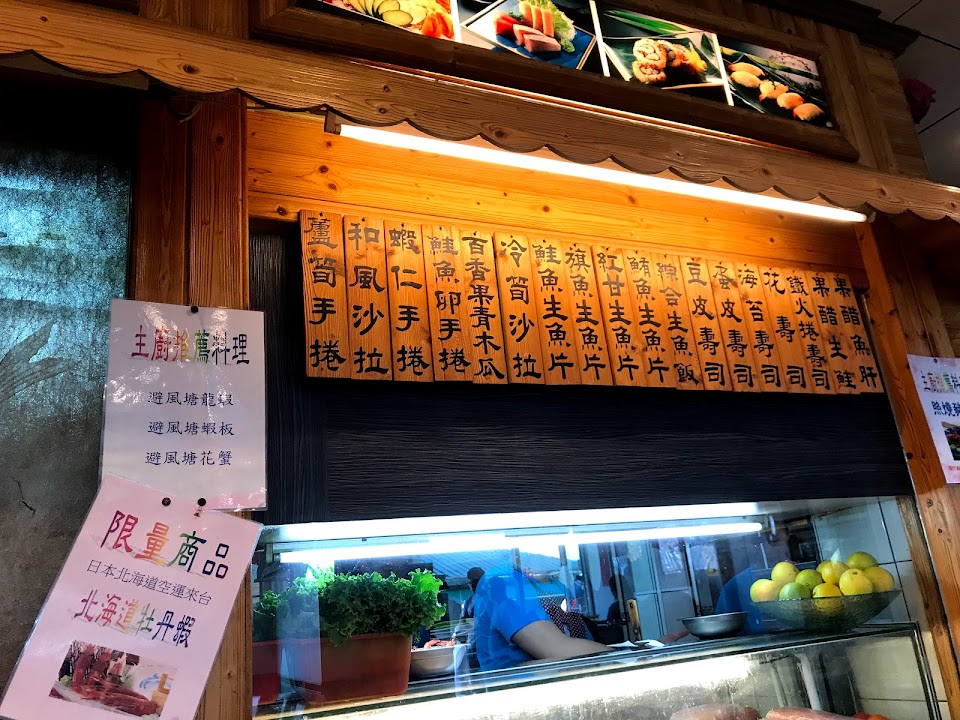 蘆筍手捲
和風沙拉
蝦仁手捲
鮭魚卵手捲
百香果青木瓜
冷筍沙拉
鮭魚生魚片
旗魚生魚片
紅甘生魚片
鮪魚生魚片
綜合生魚飯
豆皮壽司
蛋皮壽司
海苔壽司
花壽司
鐵火捲壽司
果醋生鮭
果醋魚肝
主廚推薦料理
避風塘龍蝦
避風塘蝦板
避風塘花蟹
限量商品
日本北海道空運來台
北海道牡丹蝦
主廚推薦料
照燒